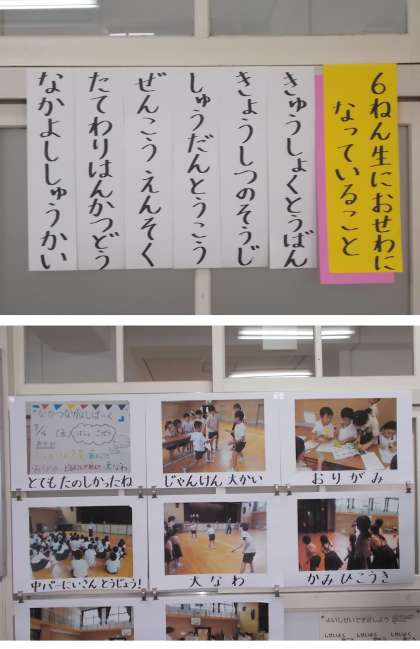 6ねん生におせわに
なっていること
きゅうしょくとうばん
きょうしつのそうじ
しゅうだんとうこう
ぜんこうえんそく
たてわりはんかつどう
なかよししゅうかい
とてもたのしかったね
じゃんけん大かい
おりがみ
中バーにいさんとうじょう!
大なわ
かみひこうき